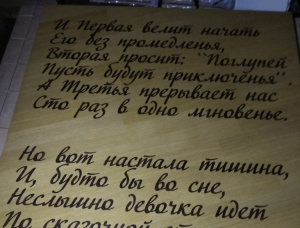 И Первая велит начать
Его без промедленья,
Вторая просит: "Поглупей
Пусть будут приключенья".
А Третья прерывает нас
Сто раз в одно мгновенье.
Но вот настала тишина,
И, будто бы во сне,
Неслышно девочка идет
По сказочной